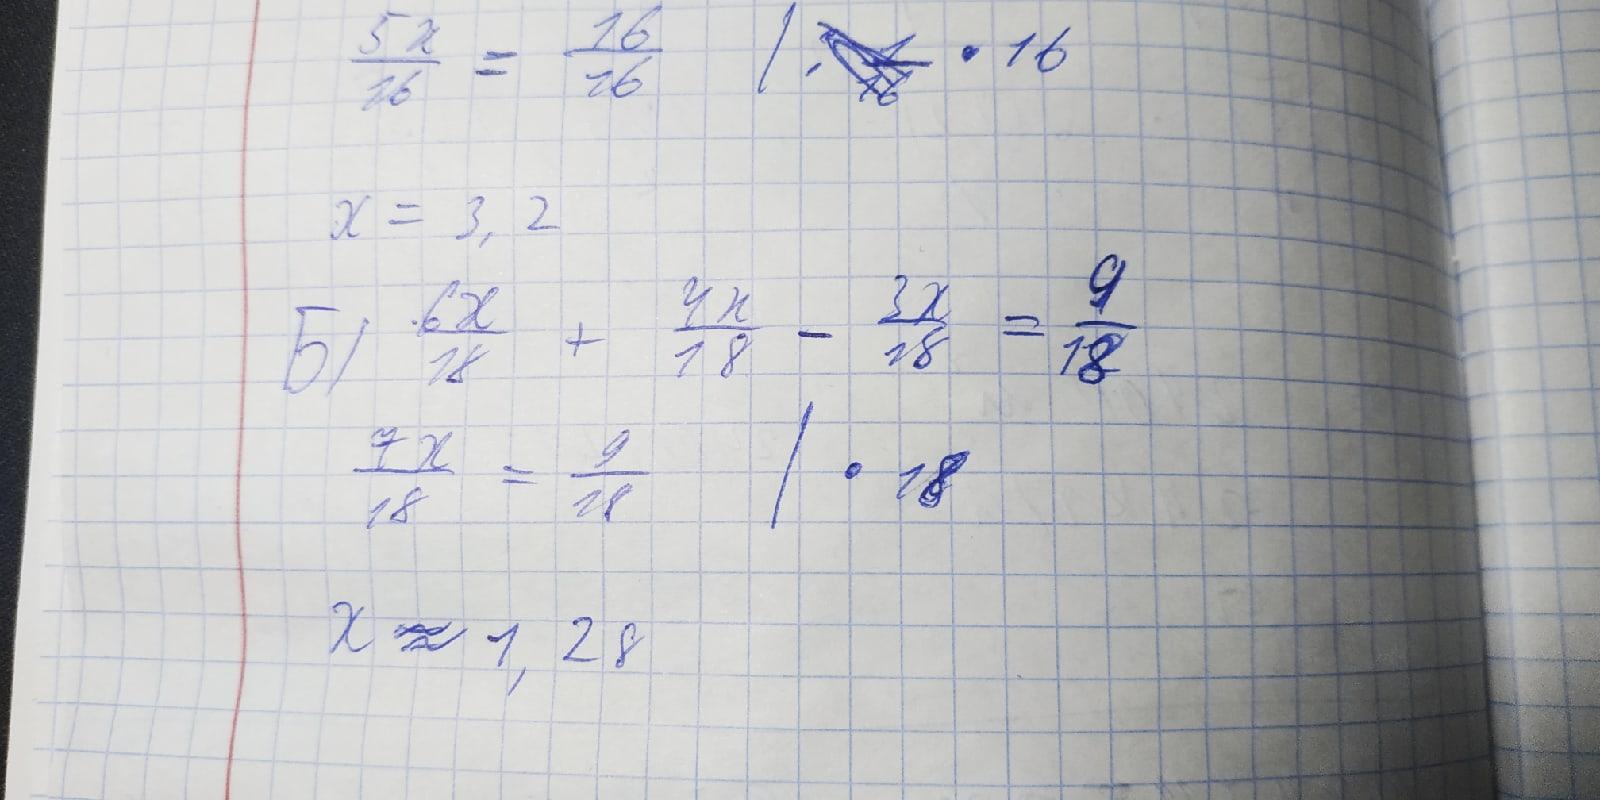 5x/16 = 16/16 | · 16
x = 3,2
Б) 6x/18 + 4x/18 - 3x/18 = 9/18
7x/18 = 9/18 | · 18
x ≈ 1,28